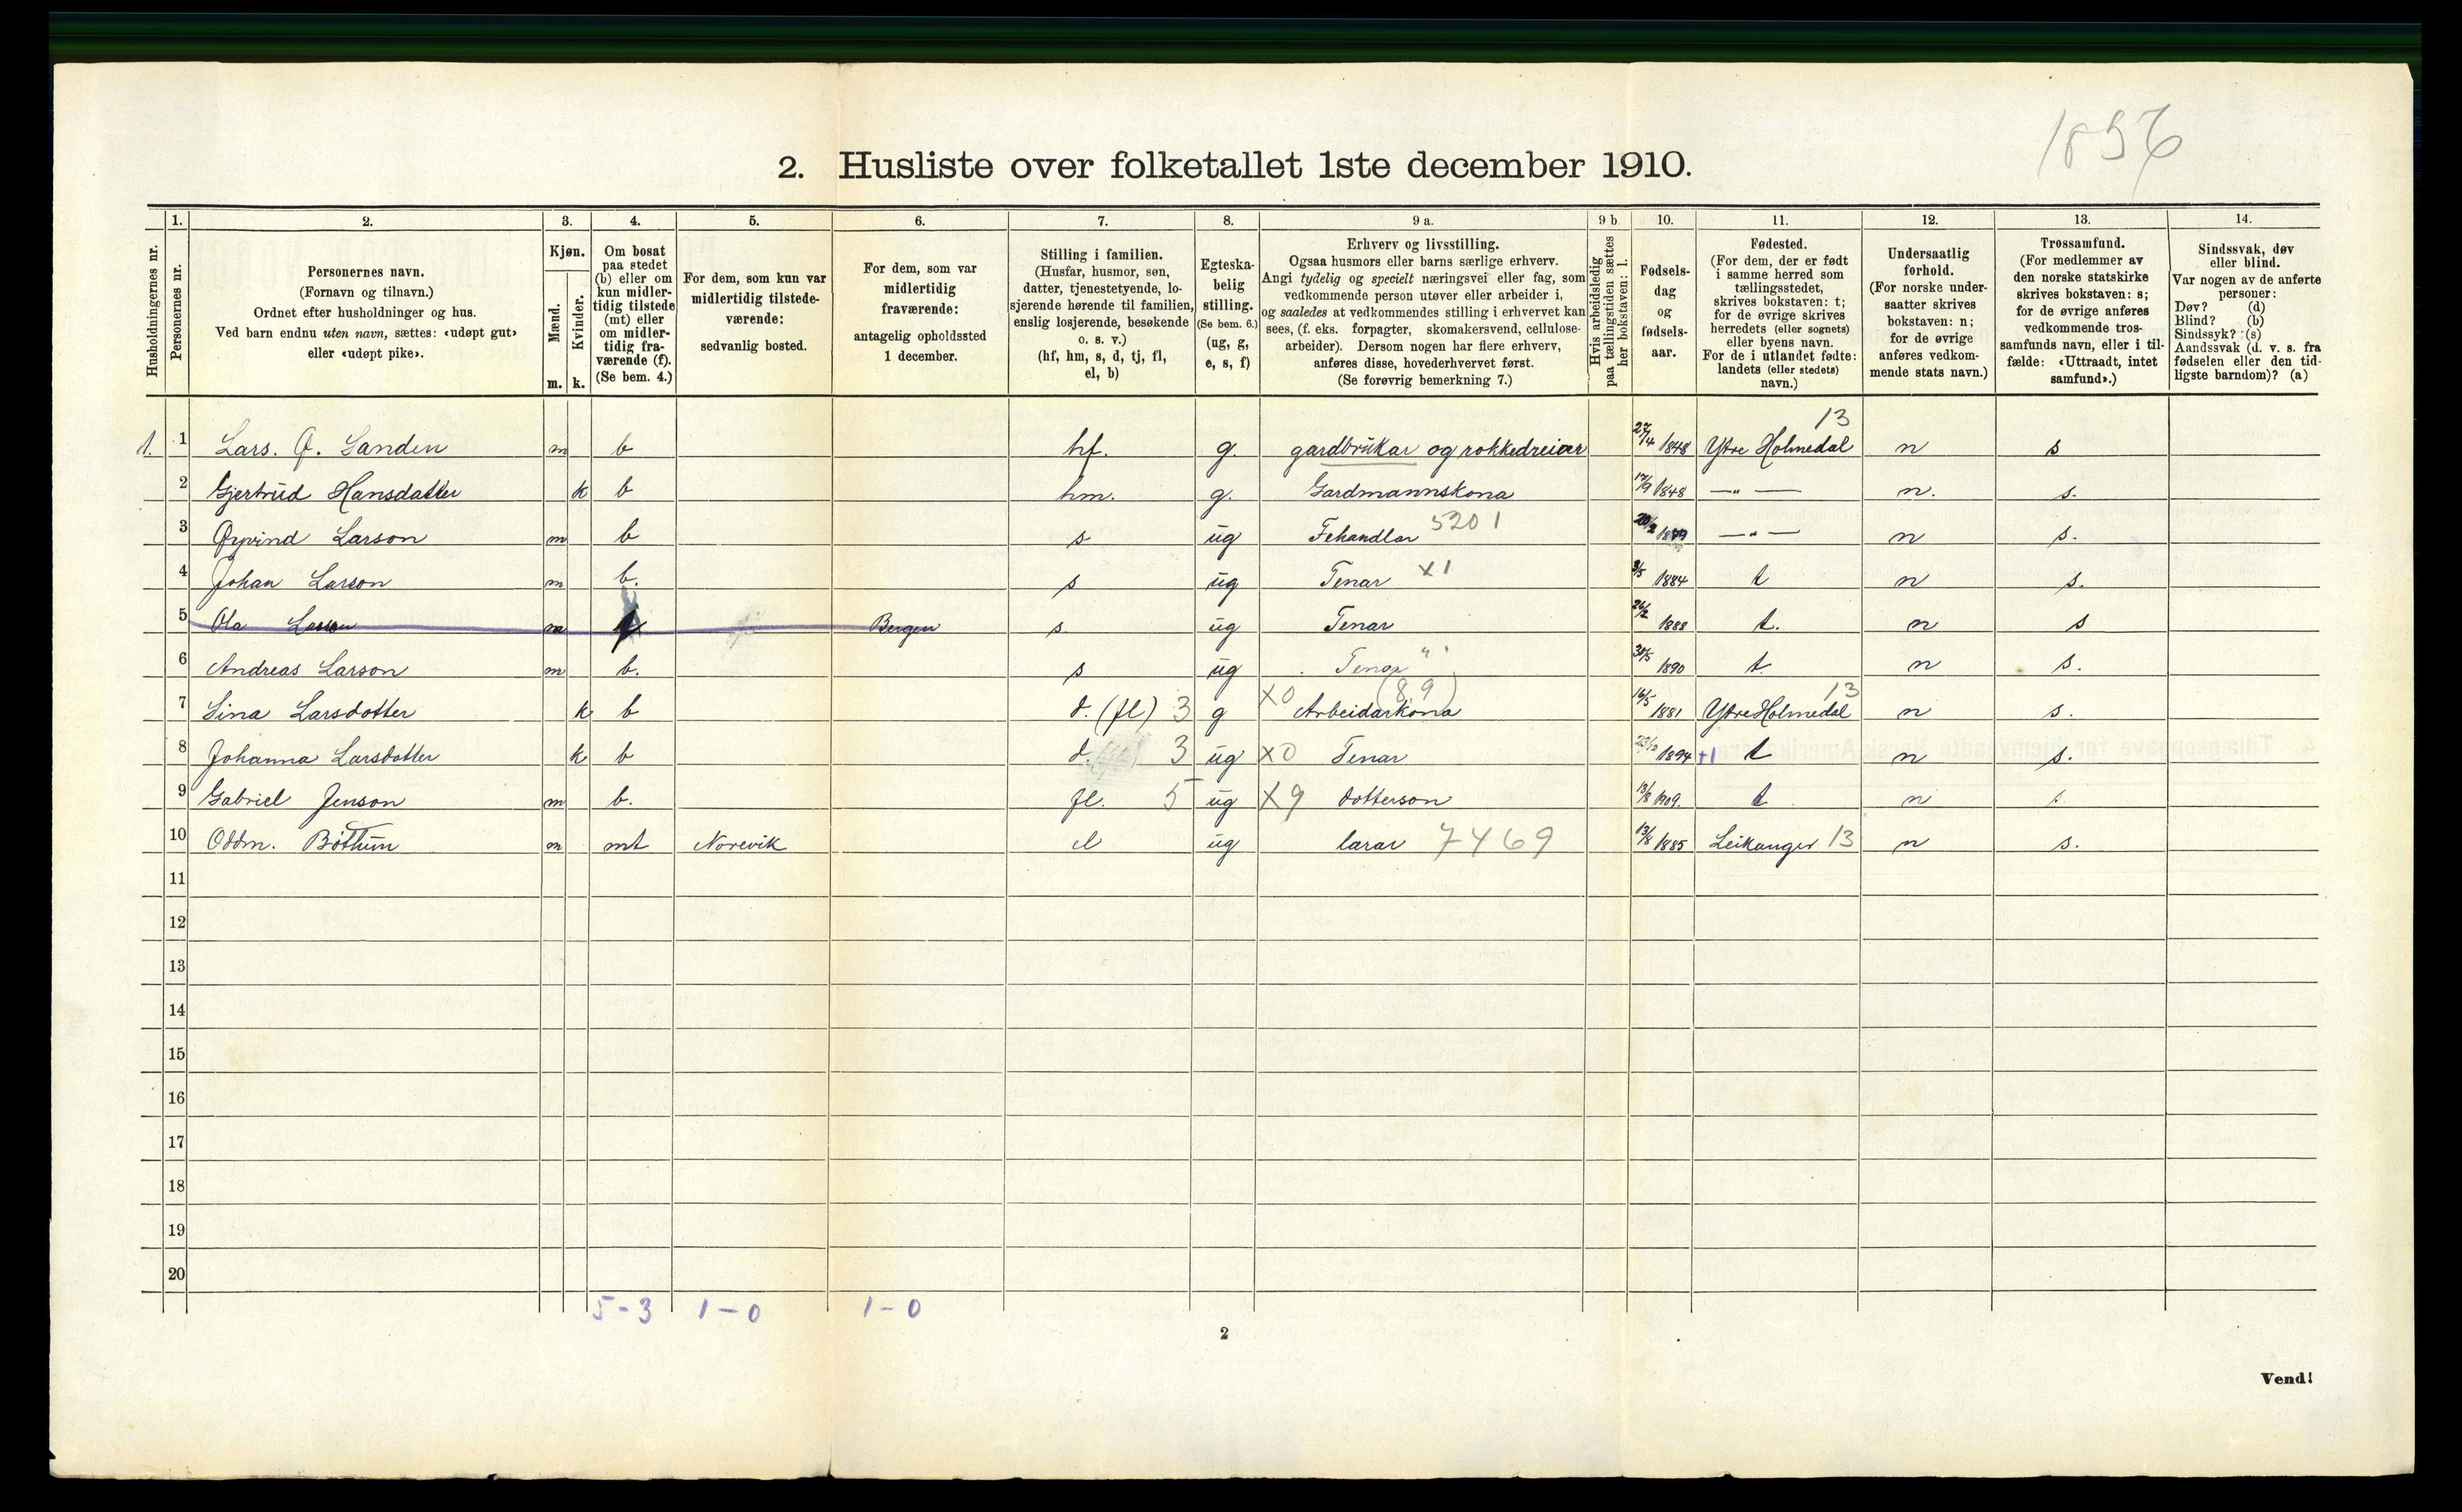 1856
2. Husliste over folketallet 1ste december 1910.
Husholdningernes nr.
1. Personernes nr.
2. Personernes navn. (Fornavn og tilnavn.) Ordnet efter husholdninger og hus. Ved barn endnu uten navn, sættes: «udøpt gut» eller «udøpt pike».
3. Kjøn. Mænd. m. Kvinder. k.
4. Om bosat paa stedet (b) eller om kun midler-tidig tilstede (mt) eller om midler-tidig fra-værende (f). (Se bem. 4.)
5. For dem, som kun var midlertidig tilstede-værende: sedvanlig bosted.
6. For dem, som var midlertidig fraværende: antagelig opholdssted 1 december.
7. Stilling i familien. (Husfar, husmor, søn, datter, tjenestetyende, lo-sjerende hørende til familien, enslig losjerende, besøkende o. s. v.) (hf, hm, s, d, tj, fl, el, b)
8. Egteska-belig stilling. (Se bem. 6.) (ug, g, e, s, f)
9 a. Erhverv og livsstilling. Ogsaa husmors eller barns særlige erhverv. Angi tydelig og specielt næringsvei eller fag, som vedkommende person utøver eller arbeider i, og saaledes at vedkommendes stilling i erhvervet kan sees, (f. eks. forpagter, skomakersvend, cellulose-arbeider). Dersom nogen har flere erhverv, anføres disse, hovederhvervet først. (Se forøvrig bemerkning 7.)
9 b Hvis arbeidsledig paa tællingstiden sættes her bokstaven: l.
10. Fødsels-dag og fødsels-aar.
11. Fødested. (For dem, der er født i samme herred som tællingsstedet, skrives bokstaven: t; for de øvrige skrives herredets (eller sognets) eller byens navn. For de i utlandet fødte: landets (eller stedets) navn.)
12. Undersaatlig forhold. (For norske under-saatter skrives bokstaven: n; for de øvrige anføres vedkom-mende stats navn.)
13. Trossamfund. (For medlemmer av den norske statskirke skrives bokstaven: s; for de øvrige anføres vedkommende tros-samfunds navn, eller i til-fælde: «Uttraadt, intet samfund».)
14. Sindssvak, døv eller blind. Var nogen av de anførte personer: Døv? (d) Blind? (b) Sindssyk? (s) Aandssvak (d. v. s. fra fødselen eller den tid-ligste barndom)? (a)
1. 1 Lars. Ø. Sanden m b hf. g. gardbrukar og rokkedreiar 27/4 1848 Ytre Holmedal 13 n s
2 Gjertrud Hansdatter k b hm. g. Gardmannskona 17/9 1848 —„— n. s.
3 Øyvind Larson m b s ug Fehandlar 5201 1879 —„— n s.
4 Johan Larson m b. s ug Tenar X1 3/5 1884 t n s.
5 Ola Larson m Bergen s. ug Tenar 26/2 1888 t. n s
6 Andreas Larson m b. s ug Tenar „ 30/5 1890 t. n s.
7 Sina Larsdotter k b d. (fl) 3 g X0 Arbeidarkona (8,9) 16/5 1881 Ytre Holmedal 13 n s.
8 Johanna Larsdotter k b d. 3 ug X0 Tenar 23/12 1894 +1 t n s.
9 Gabriel Jenson m b. fl. 5 ug X9 dotterson 13/8 1909. t n s
10 Oddm. Böthun m mt Norevik el ug lærar 7469 13/6 1885 Leikanger 13 n s.
11
12
13
14
15
16
17
18
19
20
5-3 1-0 1-0
2
Vend!